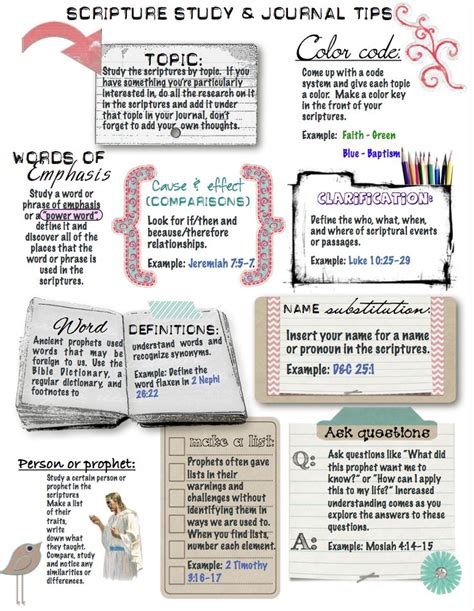 SCRIPTURE STUDY & JOURNAL TIPS
TOPIC:
Study the scriptures by topic. If you
have something you're particularly
interested in, do all the research on it
in the scriptures and add it under
that topic in your journal, don't
forget to add your own thoughts.
Color code:
Come up with a code
system and give each topic
a color. Make a color key
in the front of your
scriptures.
Example: Faith - Green
Blue - Baptism
WORDS OF
Emphasis
Study a word or
phrase of emphasis
or a "power word",
define it and
discover all of the
places that the
word or phrase is
used in the
scriptures.
Cause & effect
(COMPARISONS)
Look for if/then and
because/therefore
relationships.
Example: Jeremiah 7:5-7.
CLARIFICATION:
Define the who, what, when,
and where of scriptural events
or passages.
Example: Luke 10:25-29
Word
Ancient prophets used
words that may be
foreign to us. Use the
Bible Dictionary, a
regular dictionary, and
footnotes to
DEFINITIONS:
understand words and
recognize synonyms.
Example: Define the
word flaxen in 2 Nephi
26:22
NAME substitution:
Insert your name for a name
or pronoun in the scriptures.
Example: D&C 25:1
make a list:
Prophets often gave
lists in their
warnings and
challenges without
identifying them in
ways we are used to.
When you find lists,
number each element.
Example: 2 Timothy
3:16-17
Ask questions
Q:
Ask questions like "What did
this prophet want me to
know?" or "How can I apply
this to my life?" Increased
understanding comes as we
discover answers to these
questions.
A:
Example: Mosiah 4:14-15
Person or prophet:
Study a certain person
or prophet in the
scriptures
Make a list
of their
traits,
write
down what
they taught.
Compare, study
and notice any
similarities or
differences.